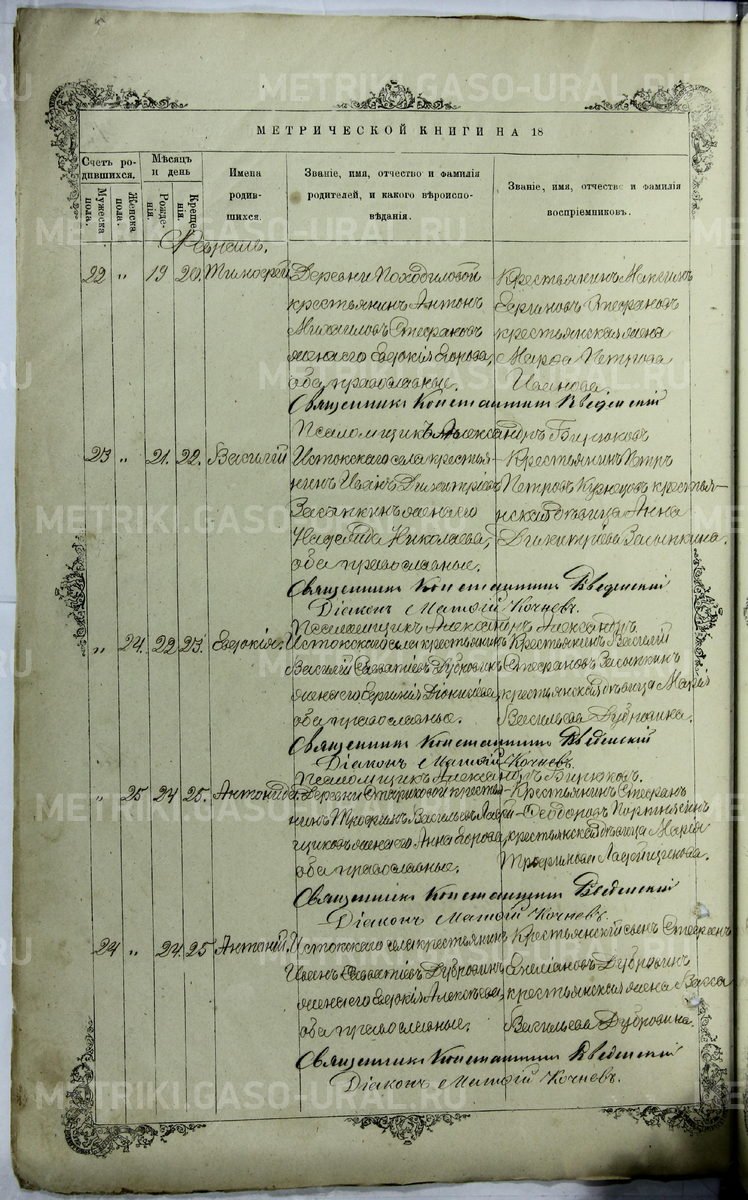 МЕТРИЧЕСКОЙ КНИГИ НА 18
Счетъ родившихся.
Мужеска пола.
Женска пола.
Мѣсяцъ и день
Рожденія.
Крещенія.
Имена родившихся.
Званіе, имя, отчество и фамилія родителей, и какого вѣроисповѣданія.
Званіе, имя, отчество и фамилія воспріемниковъ.
22 „ 19 20. Тимофей
Деревни Походиловой
крестьянинъ Антонъ
Михаиловъ Стефановъ
жена его Евдокія Егорова,
оба православные.
Крестьянинъ Максимъ
Стефановъ
крестьянская жена
Марѳа Петрова
Иванова.
Священникъ Константинъ Введенскій
Псаломщикъ Александръ Бирюковъ
23 „ 21. 22. Василій
Истокскаго села крестья-
нинъ Иванъ Димитріевъ
Засыпкинъ жена его
Надежда Николаева,
оба православные.
Крестьянинъ Петръ
Петровъ Кузнецовъ крестья-
нская дѣвица Анна
Димитріева Засыпкина.
Священникъ Константинъ Введенскій
Діаконъ Матѳій Кочневъ.
Псаломщикъ Александръ
„ 24. 22 23. Евдокія
Истокскаго села крестьянинъ
Василій Савватіевъ Дубровинъ
жена его Евгенія Діонисіева,
оба православные.
Крестьянинъ Василій
Стефановъ Засыпкинъ
крестьянская дѣвица Марія
Васильева Дубровина.
Священникъ Константинъ Введенскій
Діаконъ Матѳій Кочневъ.
Псаломщикъ Александръ Бирюковъ.
„ 25 24 25. Антонида
Деревни Стариковой крестья-
нинъ Трофимъ Васильевъ
жена его Анна Егорова,
оба православные.
Крестьянинъ Стефанъ
Ѳеодоровъ
крестьянская дѣвица Марія
Трофимова
Священникъ Константинъ Введенскій
Діаконъ Матѳій Кочневъ.
24 „ 24. 25 Антоній.
Истокскаго села крестьянинъ
Иванъ Савватіевъ Дубровинъ
жена его Евдокія Алексѣева,
оба православные.
Крестьянскій сынъ Стефанъ
Емеліановъ Дубровинъ
крестьянская жена Васса
Васильева Дубровина.
Священникъ Константинъ Введенскій
Діаконъ Матѳій Кочневъ.
METRIKI.GASO-URAL.RU